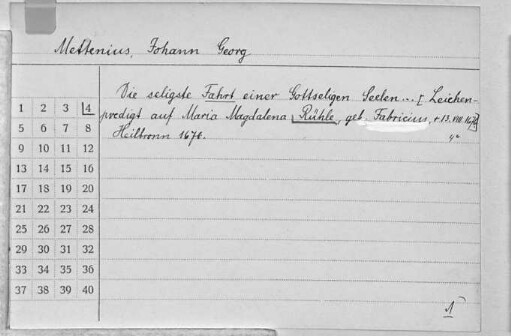 Mettenius, Johann Georg
Die seligste Fahrt einer Gottseligen Seelen... [Leichen-
predigt auf Maria Magdalena Rühle, geb. Fabricius, + 13. VIII.
Heilbronn 1678. 4°
1 2 3 4
5 6 7 8
9 10 11 12
13 14 15 16
17 18 19 20
21 22 23 24
25 26 27 28
29 30 31 32
33 34 35 36
37 38 39 40
1